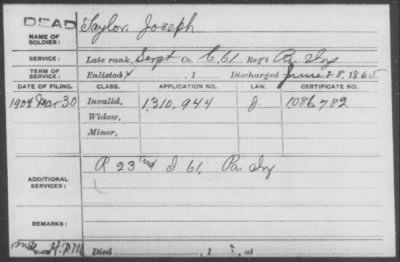 DEAD
NAME OF SOLDIER: Taylor, Joseph
SERVICE: Late rank, Sergt Co. C. 61 Reg't Pa Inf
TERM OF SERVICE: Enlisted , 1 Discharged June 28, 1865
DATE OF FILING. CLASS. APPLICATION NO. LAW. CERTIFICATE NO.
1904 Mar 30 Invalid, 1,310,944 J 1086,782
Widow,
Minor,
ADDITIONAL SERVICES: 23 I 61. Pa Inf
REMARKS:
Died , 1 , at